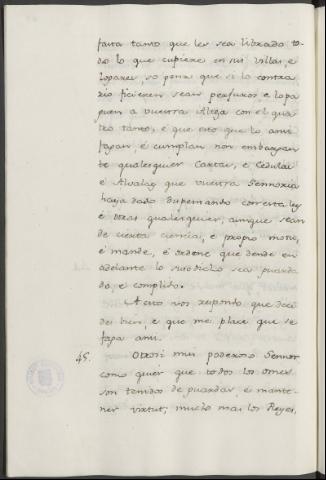 fasta tanto que les sea librado to-
do lo que cupiere en sus villas, e
logares, so pena que si lo contra
rio ficieren sean perjuros, e lo pa
guen a vuestra Alteza con el qua
tro tanto, e que esto que lo ansi
fagan, é cumplan non embargan
te qualesquier Cartas, e Cedulas
é Alvalas que vuestra Sennoria
haya dado dispensando con esta ley
é otras qualesquier, aunque sean
de cierta ciencia, e propio motu,
é mande, é ordene que dende en
adelante lo susodicho sea guarda
do, e complido.
A esto vos respondo que deci
des bien, e que me place que se
faga ansi.
45. Otrosi mui poderoso Sennor
como quier que todos los omes
son tenidos de guardar, e mante-
ner virtut, mucho mas los Reyes,